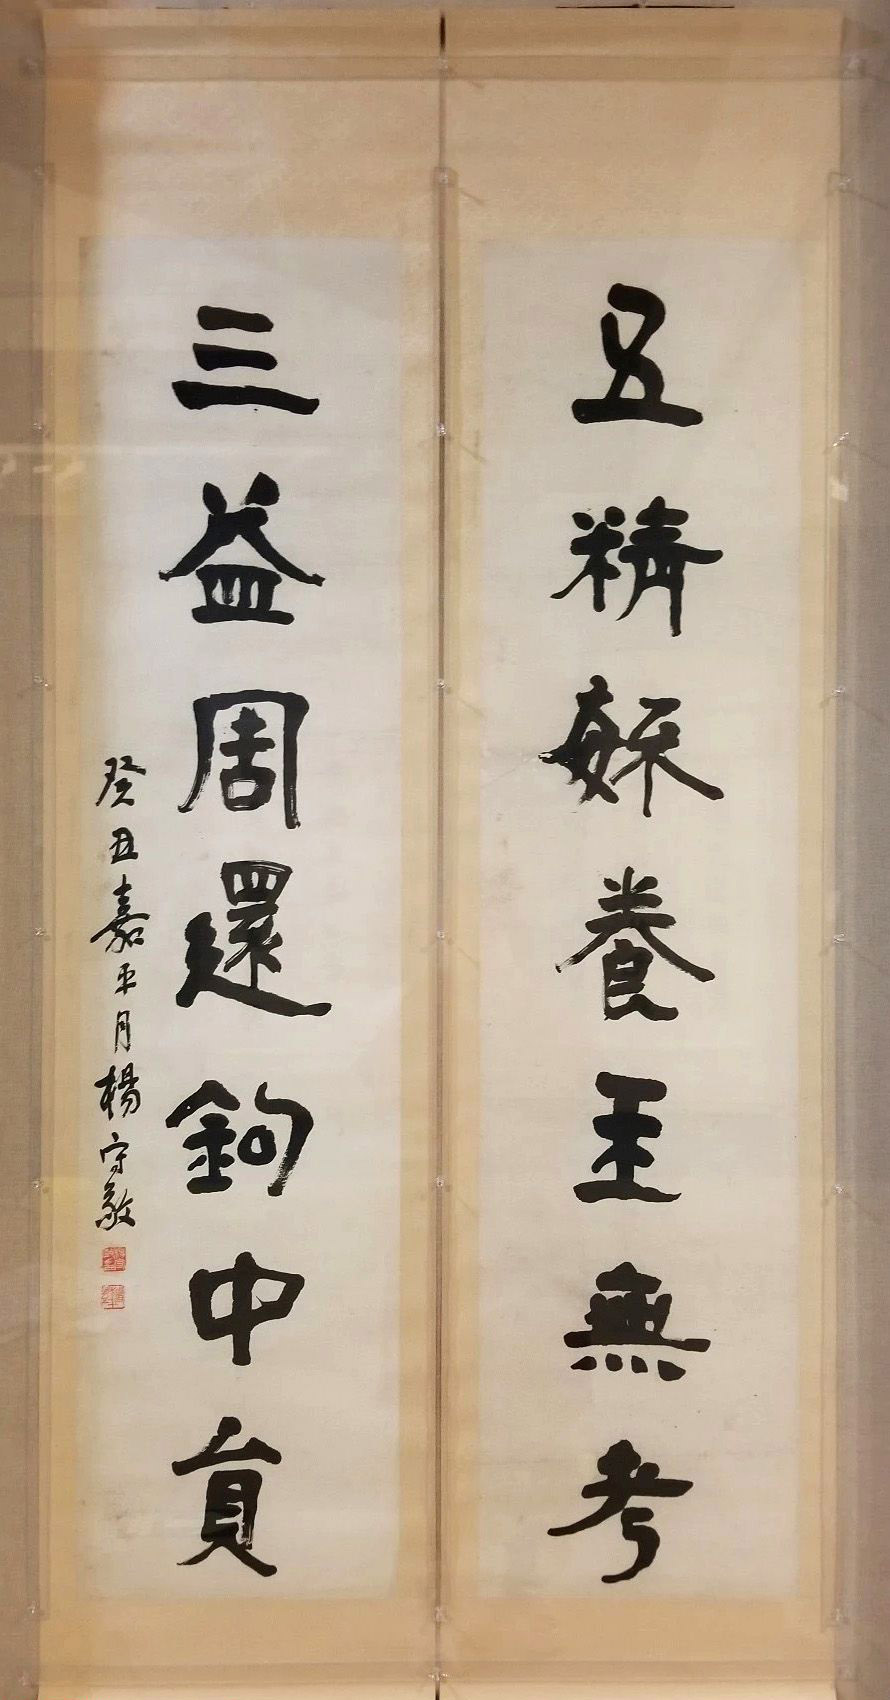 五精養王無考
三益周還鉤中貟
癸丑嘉平月楊守敬